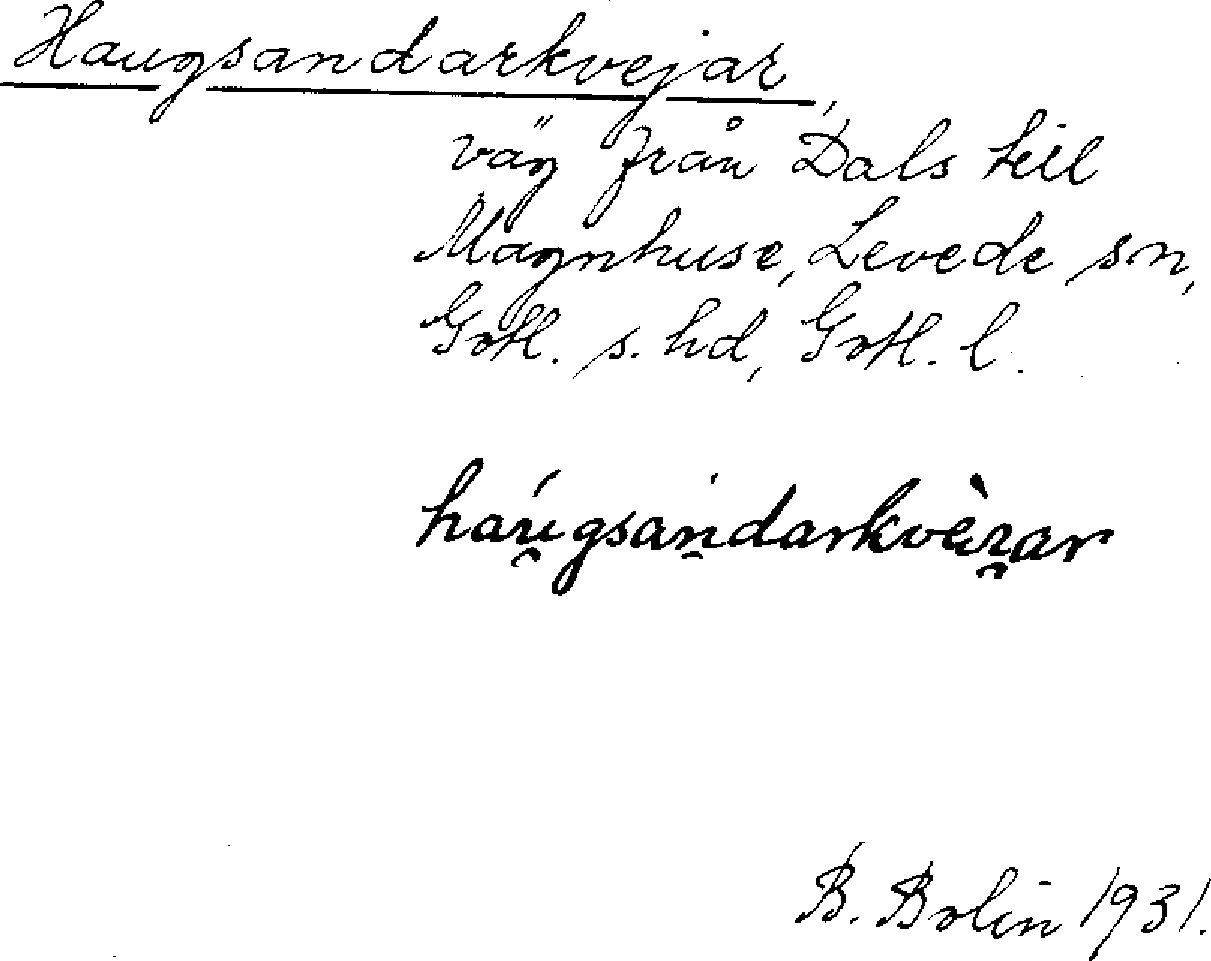 Haugsandarkvejar,
väg från Dals till
Magnhuse, Levede sn,
Gotl. s. hd, Gotl. l.
haugsandarkvèɪar
B. Bolin 1931.